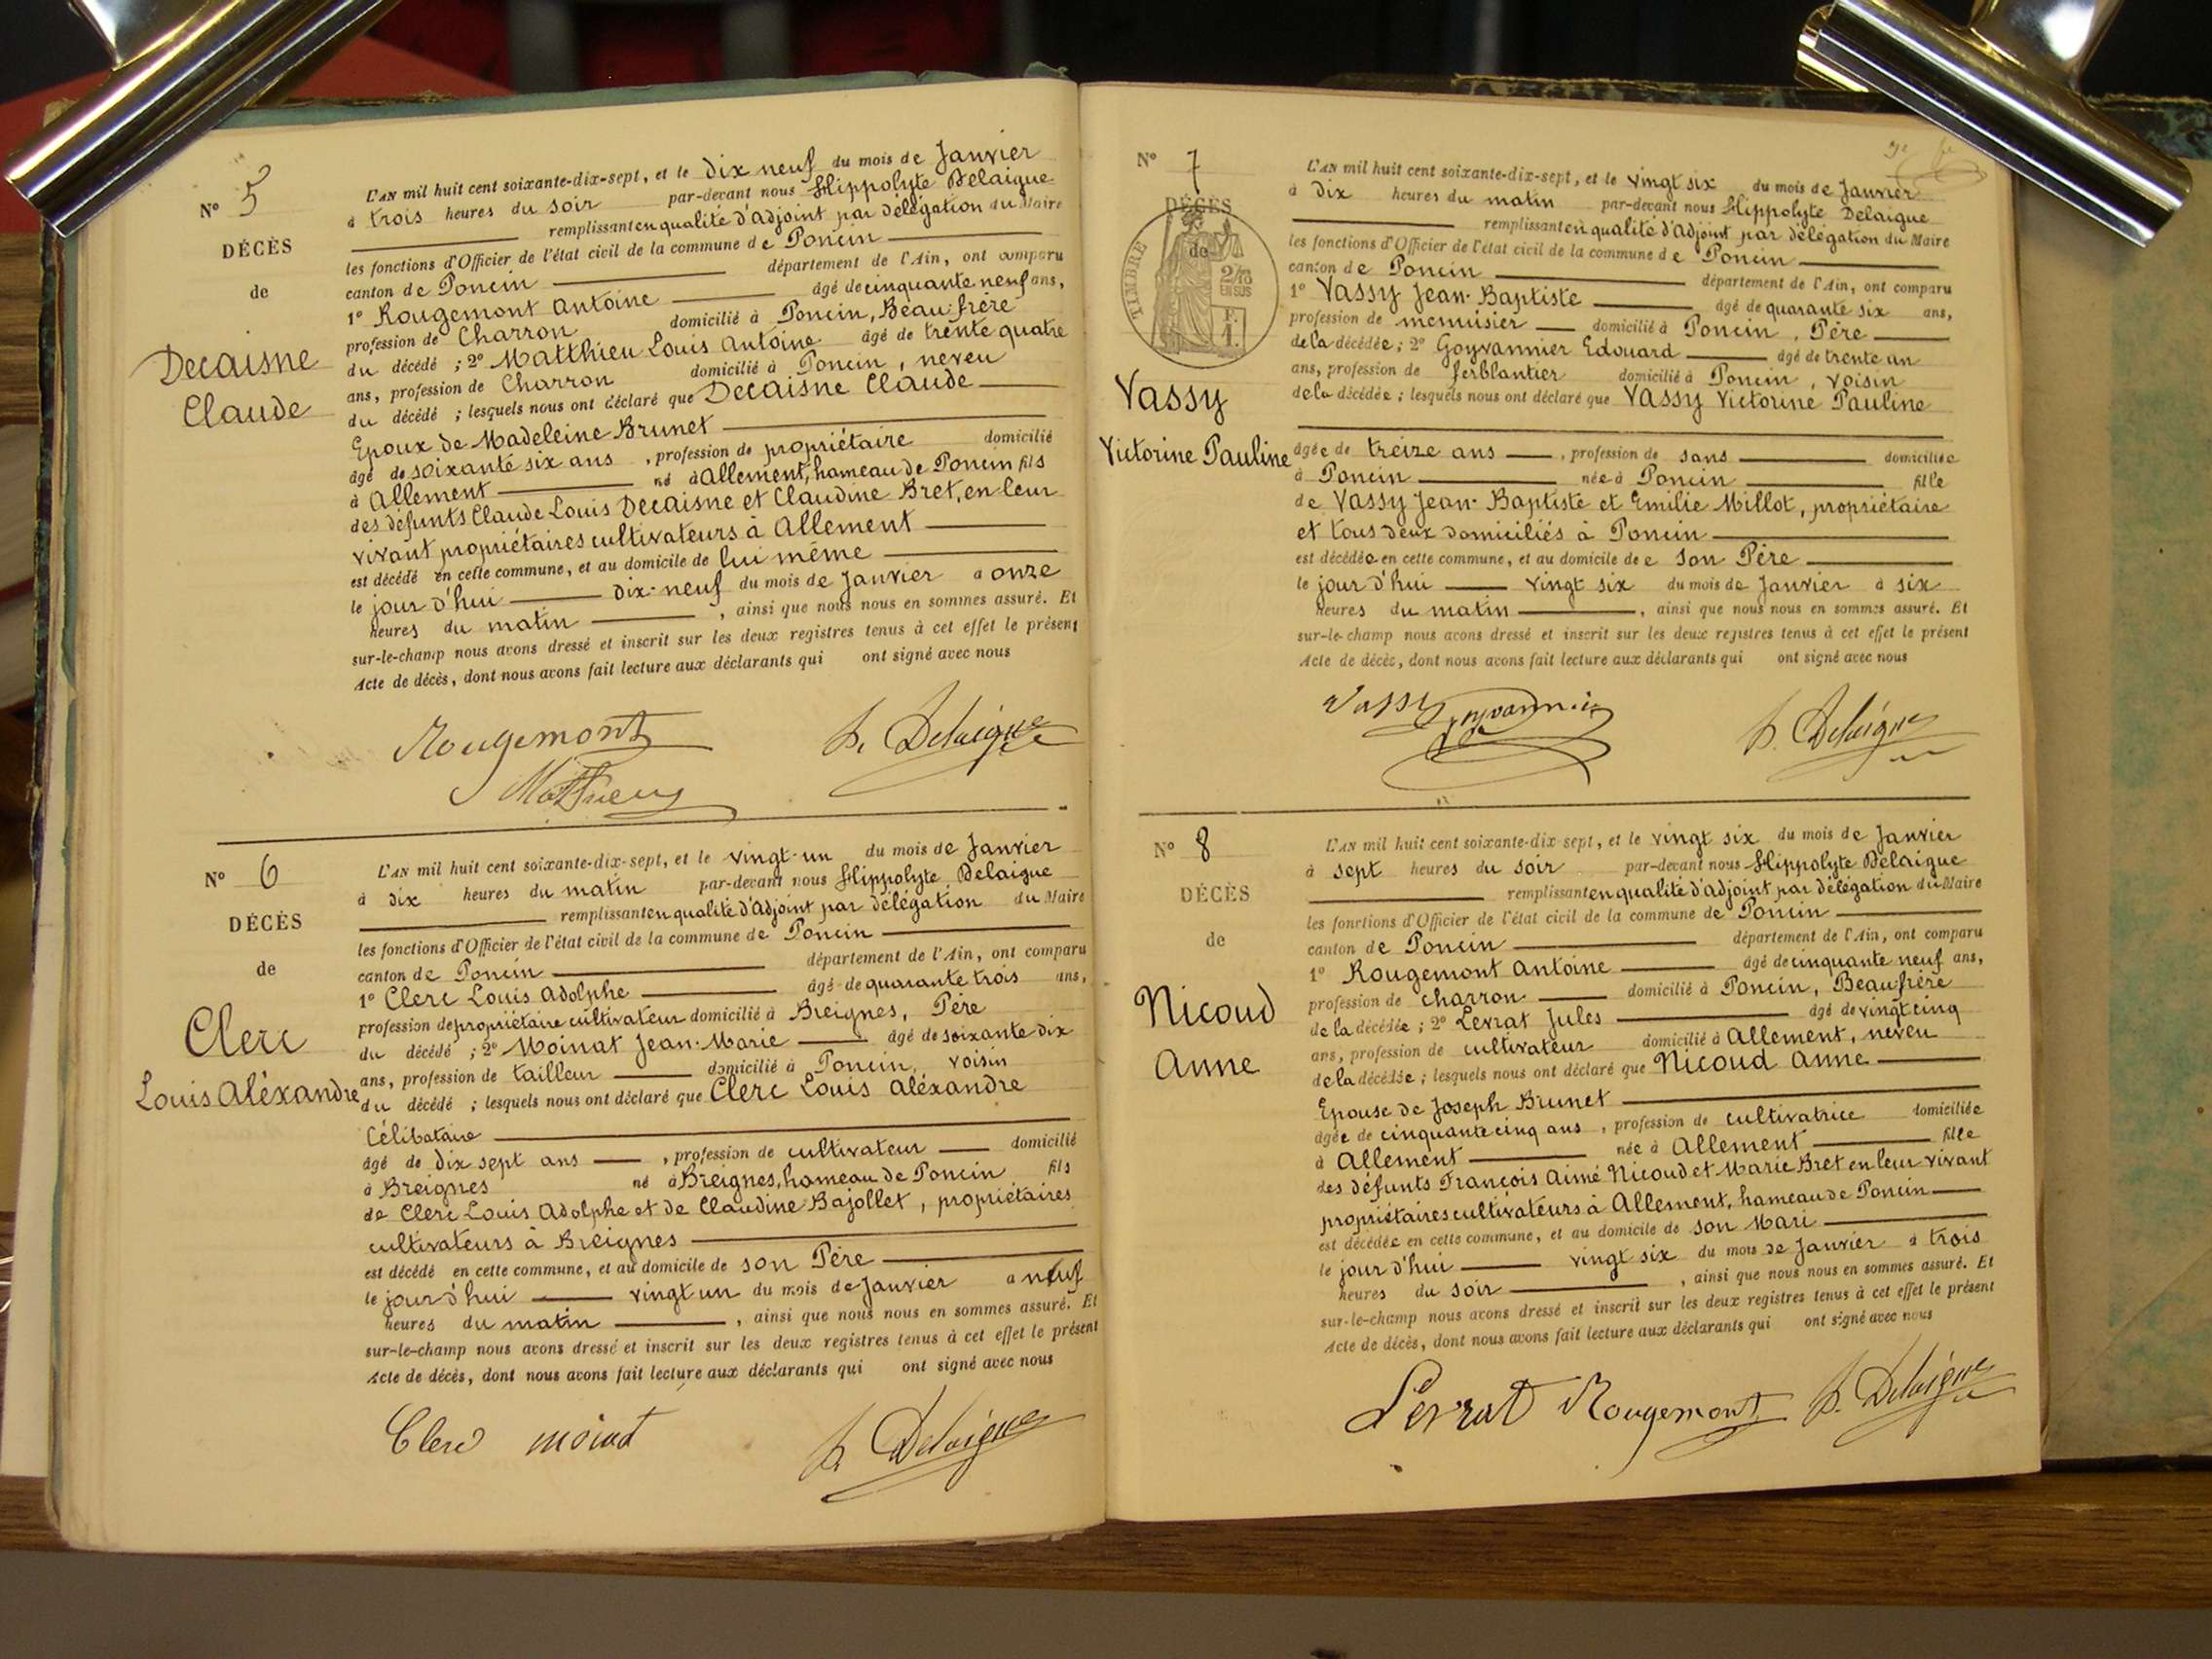 N° 5
DÉCÈS
de
Decaisne
Claude
L'AN mil huit cent soixante-dix-sept, et le dix neuf du mois de Janvier
à trois heures du soir par-devant nous Hippolyte Delaigue
remplissant en qualité d'adjoint par délégation du Maire
les fonctions d'Officier de l'état civil de la commune de Poncin
canton de Poncin département de l'Ain, ont comparu
1° Rougemont Antoine âgé de cinquante neuf ans,
profession de Charron domicilié à Poncin, Beau frère
du décédé ; 2° Matthieu Louis Antoine âgé de trente quatre
ans, profession de Charron domicilié à Poncin, neveu
du décédé ; lesquels nous ont déclaré que Decaisne Claude
Epoux de Madeleine Brunet
âgé de soixante six ans , profession de propriétaire domicilié
à Allement né à Allement, hameau de Poncin fils
des défunts Claude Louis Decaisne et Claudine Bret, en leur
vivant propriétaires cultivateurs à Allement
est décédé en cette commune, et au domicile de lui même
le jour d'hui dix-neuf du mois de Janvier à onze
heures du matin , ainsi que nous nous en sommes assuré. Et
sur-le-champ nous avons dressé et inscrit sur les deux registres tenus à cet effet le présent
Acte de décès, dont nous avons fait lecture aux déclarants qui ont signé avec nous
Rougemont h. Delaigue
Mathieu
N° 6
DÉCÈS
de
Clerc
Louis Aléxandre
L'AN mil huit cent soixante-dix-sept, et le vingt-un du mois de Janvier
à dix heures du matin par-devant nous Hippolyte Delaigue
remplissant en qualité d'adjoint par délégation du Maire
les fonctions d'Officier de l'état civil de la commune de Poncin
canton de Poncin département de l'Ain, ont comparu
1° Clerc Louis Adolphe âgé de quarante trois ans,
profession de propriétaire cultivateur domicilié à Breignes, Père
du décédé ; 2° Moinat Jean-Marie âgé de soixante dix
ans, profession de tailleur domicilié à Poncin, voisin
du décédé ; lesquels nous ont déclaré que Clerc Louis Aléxandre
Célibataire
âgé de dix sept ans , profession de cultivateur domicilié
à Breignes né à Breignes, hameau de Poncin fils
de Clerc Louis Adolphe et de Claudine Bajollet, propriétaires
cultivateurs à Breignes
est décédé en cette commune, et au domicile de son Père
le jour d'hui vingt un du mois de Janvier à neuf
heures du matin , ainsi que nous nous en sommes assuré. Et
sur-le-champ nous avons dressé et inscrit sur les deux registres tenus à cet effet le présent
Acte de décès, dont nous avons fait lecture aux déclarants qui ont signé avec nous
Clerc moinat h. Delaigue
N° 7
DÉCÈS
de
TIMBRE
2/10
EN SUS
F.
1.
Vassy
Victorine Pauline
L'AN mil huit cent soixante-dix-sept, et le vingt six du mois de Janvier
à dix heures du matin par-devant nous Hippolyte Delaigue
remplissant en qualité d'adjoint par délégation du Maire
les fonctions d'Officier de l'état civil de la commune de Poncin
canton de Poncin département de l'Ain, ont comparu
1° Vassy Jean-Baptiste âgé de quarante six ans,
profession de menuisier domicilié à Poncin, Père
de la décédée ; 2° Goyvannier Edouard âgé de trente un
ans, profession de ferblantier domicilié à Poncin, voisin
de la décédée ; lesquels nous ont déclaré que Vassy Victorine Pauline
âgée de treize ans , profession de sans domiciliée
à Poncin née à Poncin fille
de Vassy Jean-Baptiste et Emilie Millot, propriétaire
et tous deux domiciliés à Poncin
est décédée en cette commune, et au domicile de e son Père
le jour d'hui vingt six du mois de Janvier à six
heures du matin , ainsi que nous nous en sommes assuré. Et
sur-le-champ nous avons dressé et inscrit sur les deux registres tenus à cet effet le présent
Acte de décès, dont nous avons fait lecture aux déclarants qui ont signé avec nous
Vassy Goyvannier h. Delaigue
N° 8
DÉCÈS
de
Nicoud
Anne
L'AN mil huit cent soixante-dix-sept, et le vingt six du mois de Janvier
à sept heures du soir par-devant nous Hippolyte Delaigue
remplissant en qualité d'adjoint par délégation du Maire
les fonctions d'Officier de l'état civil de la commune de Poncin
canton de Poncin département de l'Ain, ont comparu
1° Rougemont Antoine âgé de cinquante neuf ans,
profession de charron domicilié à Poncin, Beau frère
de la décédée ; 2° Levrat Jules âgé de vingt cinq
ans, profession de cultivateur domicilié à Allement, neveu
de la décédée ; lesquels nous ont déclaré que Nicoud Anne
Epouse de Joseph Brunet
âgée de cinquante cinq ans , profession de cultivatrice domiciliée
à Allement née à Allement fille
des défunts François Aimé Nicoud et Marie Bret en leur vivant
propriétaires cultivateurs à Allement, hameau de Poncin
est décédée en cette commune, et au domicile de son Mari
le jour d'hui vingt six du mois de Janvier à trois
heures du soir , ainsi que nous nous en sommes assuré. Et
sur-le-champ nous avons dressé et inscrit sur les deux registres tenus à cet effet le présent
Acte de décès, dont nous avons fait lecture aux déclarants qui ont signé avec nous
Levrat Rougemont h. Delaigue